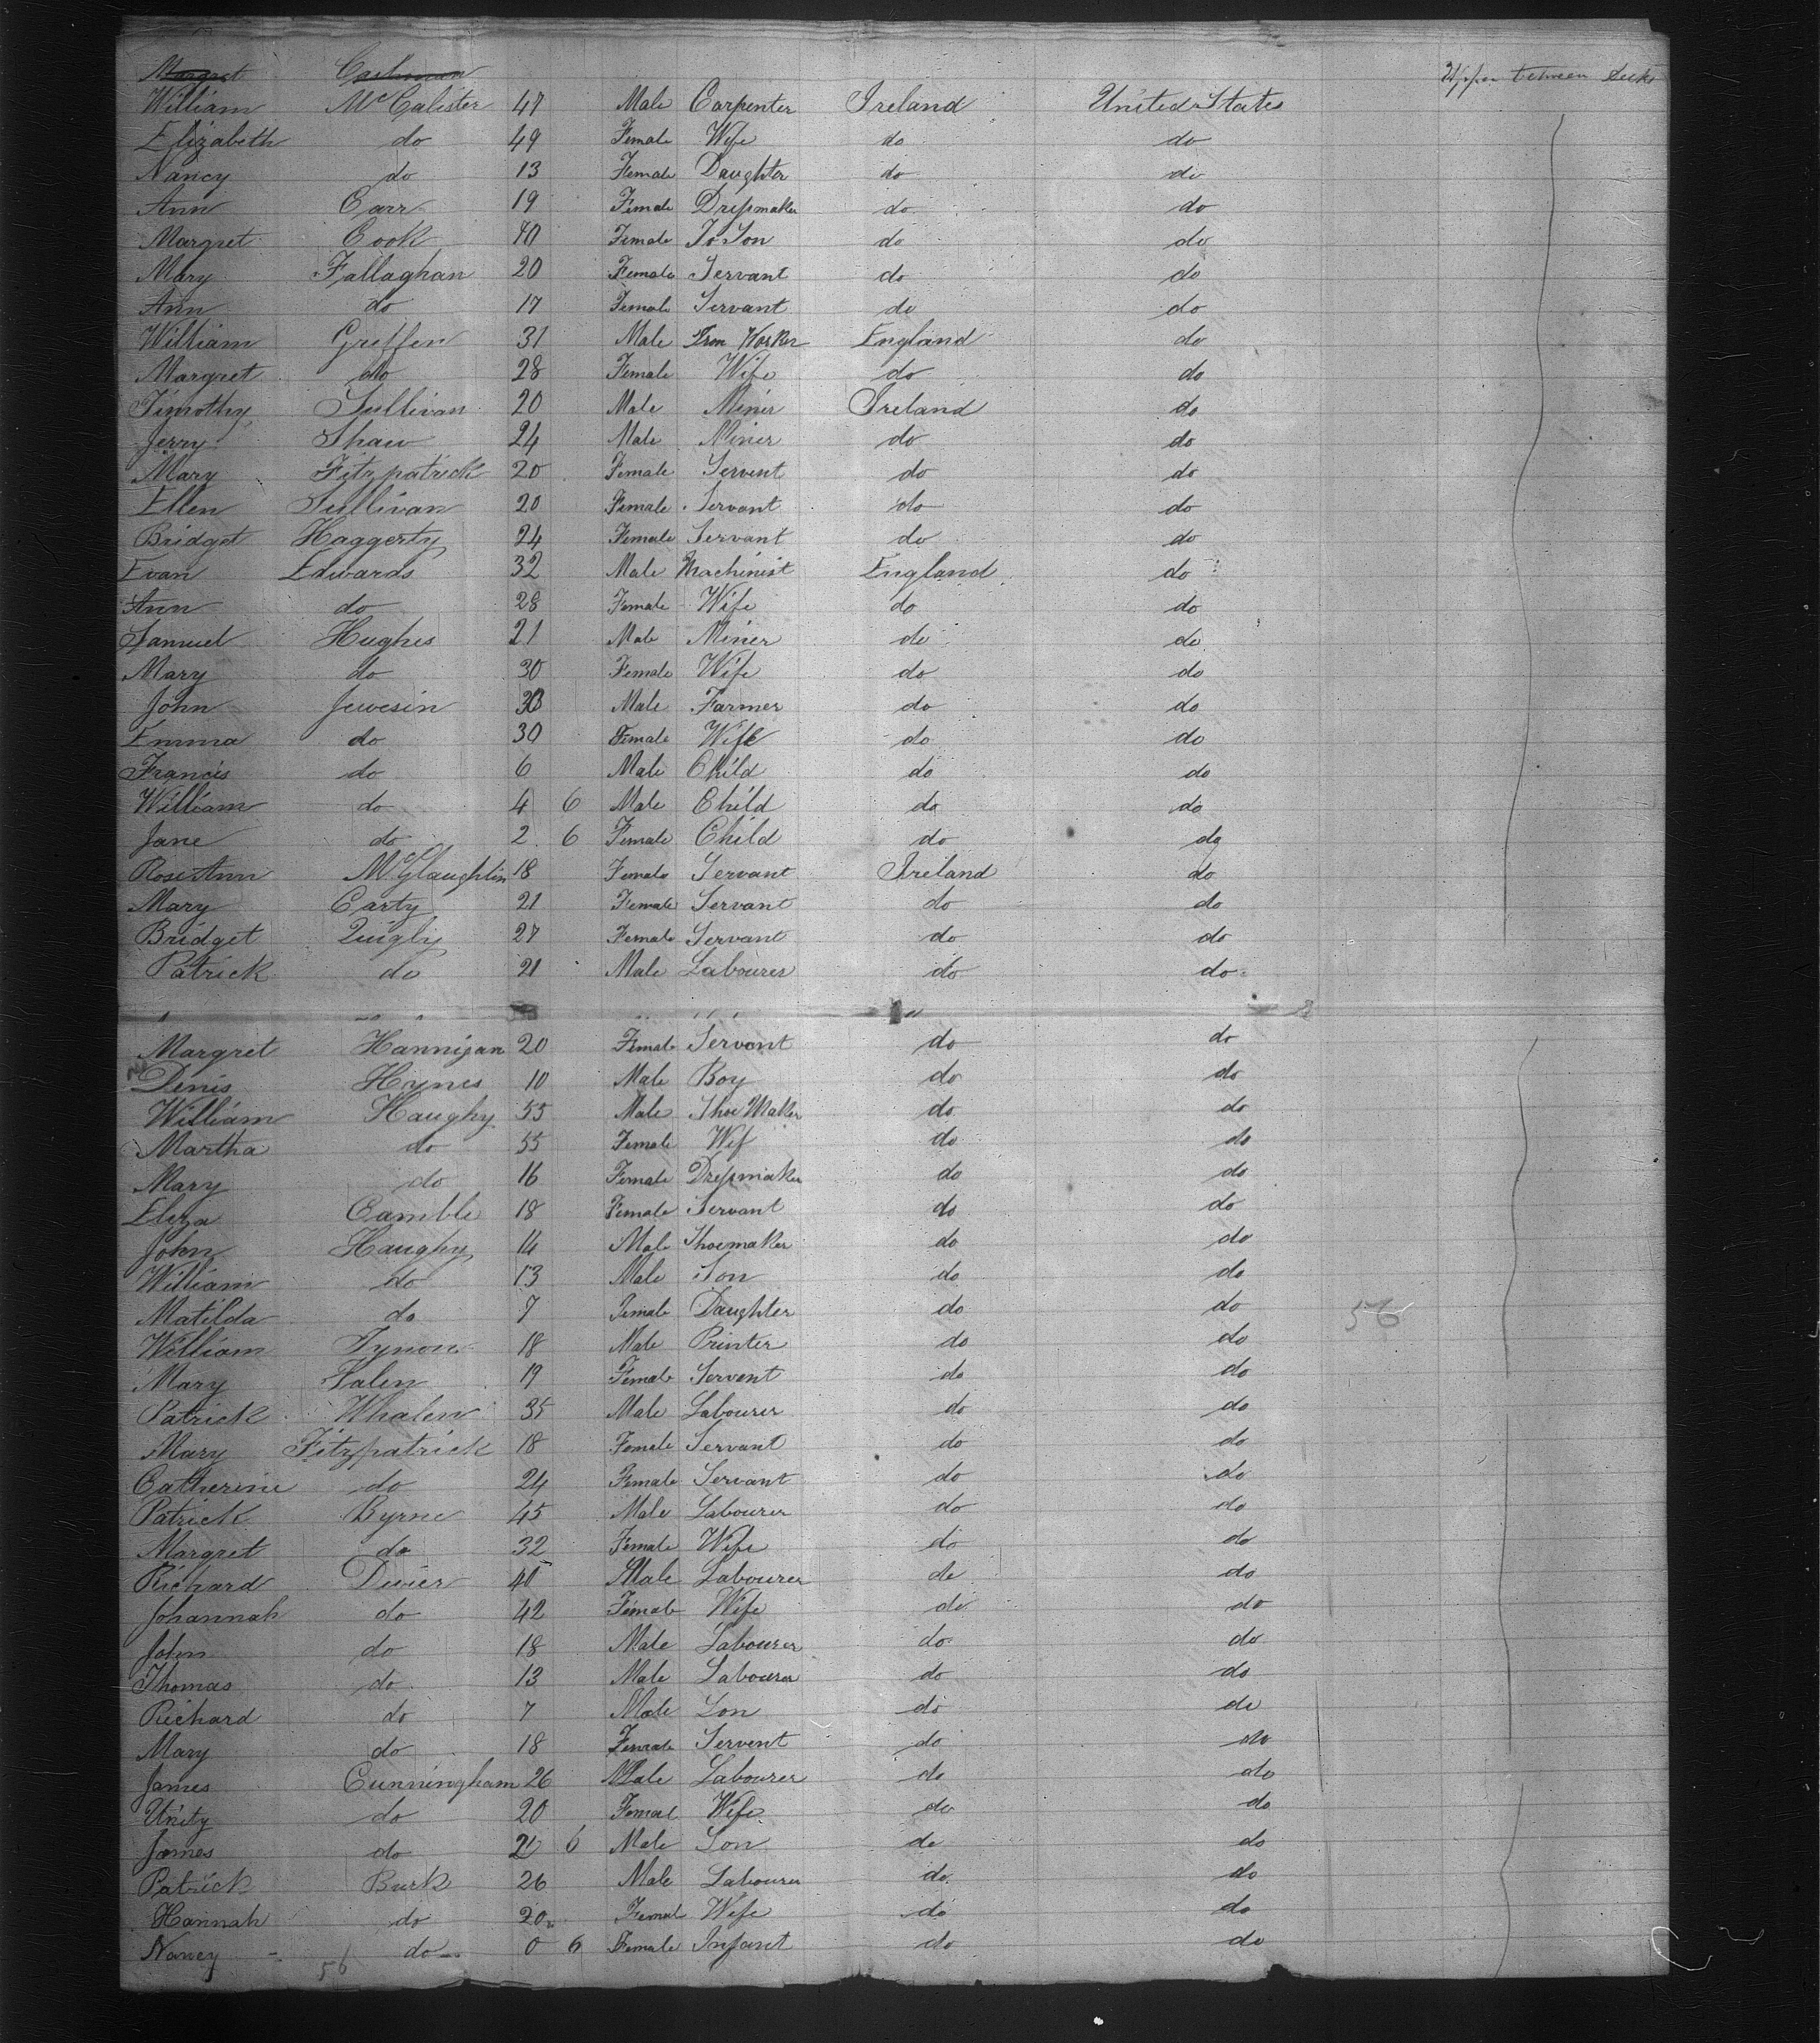 Margret Cashman
Upper between decks
William McCalister 47 Male Carpenter Ireland United States
Elizabeth do 49 Female Wife do do
Nancy do 13 Female Daughter do do
Ann Carr 19 Female Dressmaker do do
Margret Cook 40 Female do do
Mary Fallaghan 20 Female Servant do do
Ann do 17 Female Servant do do
William Griffen 31 Male Iron Worker England do
Margret do 28 Female Wife do do
Timothy Sullivan 20 Male Miner Ireland do
Jerry Shaw 24 Male Miner do do
Mary Fitzpatrick 20 Female Servent do do
Ellen Sullivan 20 Female Servant do do
Bridget Haggerty 24 Female Servant do do
Evan Edwards 32 Male Machinist England do
Ann do 28 Female Wife do do
Samuel Hughes 21 Male Miner do do
Mary do 30 Female Wife do do
John Jewesin Male Farmer do do
Emma do 30 Female Wife do do
Francis do 6 Male Child do do
William do 4 6 Male Child do do
Jane do 2 6 Female Child do do
Rose Ann McGlaughlin 18 Female Servant Ireland do
Mary Carty 21 Female Servant do do
Bridget Quigly 27 Female Servant do do
Patrick do 21 Male Labourer do do
Margret Hannigan 20 Female Servent do do
Denis Hynes 10 Male Boy do do
William Haughy 55 Male Shoe Maker do do
Martha do 55 Female Wif do do
Mary do 16 Female Dressmaker do do
Eliza Camble 18 Female Servant do do
John Haughy 14 Male Shoemaker do do
William do 13 Male Son do do
Matilda do 7 Female Daughter do do
56
William Tynon 18 Male Printer do do
Mary 19 Female Servent do do
Patrick Whalen 35 Male Labourer do do
Mary Fitzpatrick 18 Female Servant do do
Catherine do 24 Female Servant do do
Patrick Byrne 45 Male Labourer do do
Margret do 32 Female Wife do do
Richard Divier Male Labourer do do
Johannah do 42 Female Wife do do
John do 18 Male Labourer do do
Thomas do 13 Male Labourer do do
Richard do 7 Male Son do do
Mary do 18 Female Servent do do
James Cunningham 26 Male Labourer do do
Unity do 20 Femal Wife do do
James do 2 6 Male Son do do
Patrick Burk 26 Male Labourer do do
Hannah do 20 Femal Wife do do
Nancy do 0 6 Female Infant do do
56